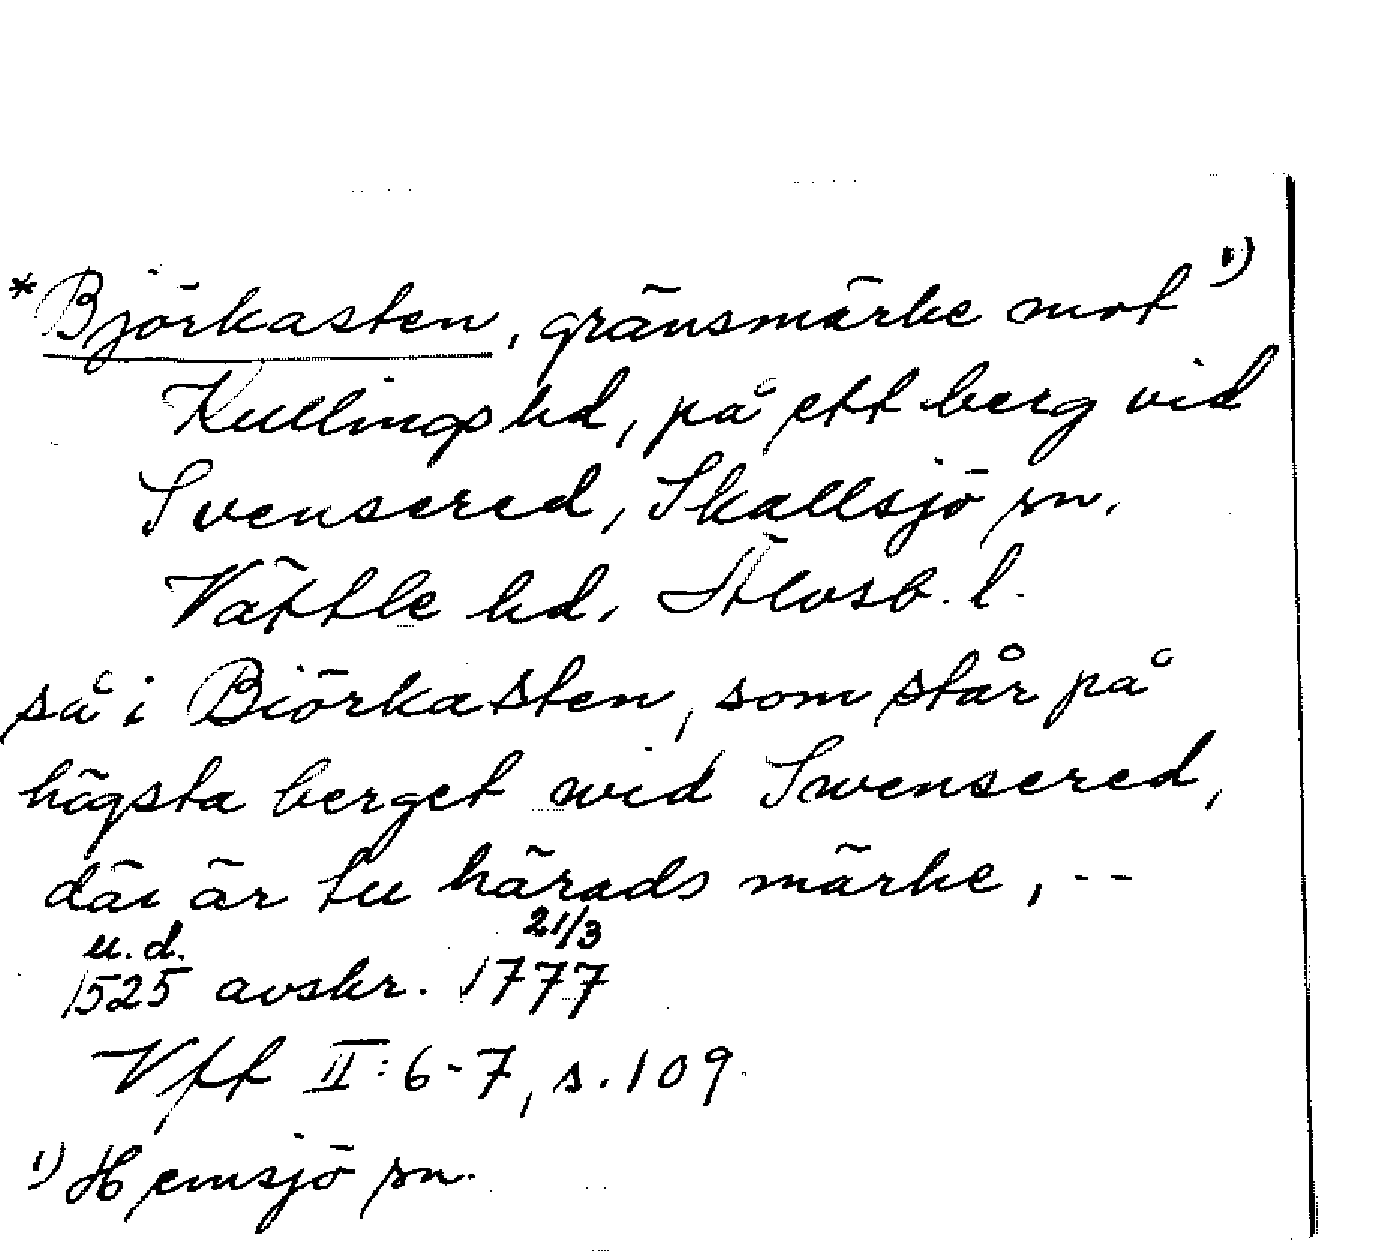 *Björkasten, gränsmärke mot 1)
Kullings hd, på ett berg vid
Svensered, Skallsjö sn.
Vättle hd. Älvsb. l.
så i Biörkasten, som står på
högsta berget wid Swensered,
där är tu härads märke, --
u.d. 21/3
1525 avskr. 1777
Vft II:6-7, s.109
1) Hemsjö sn.